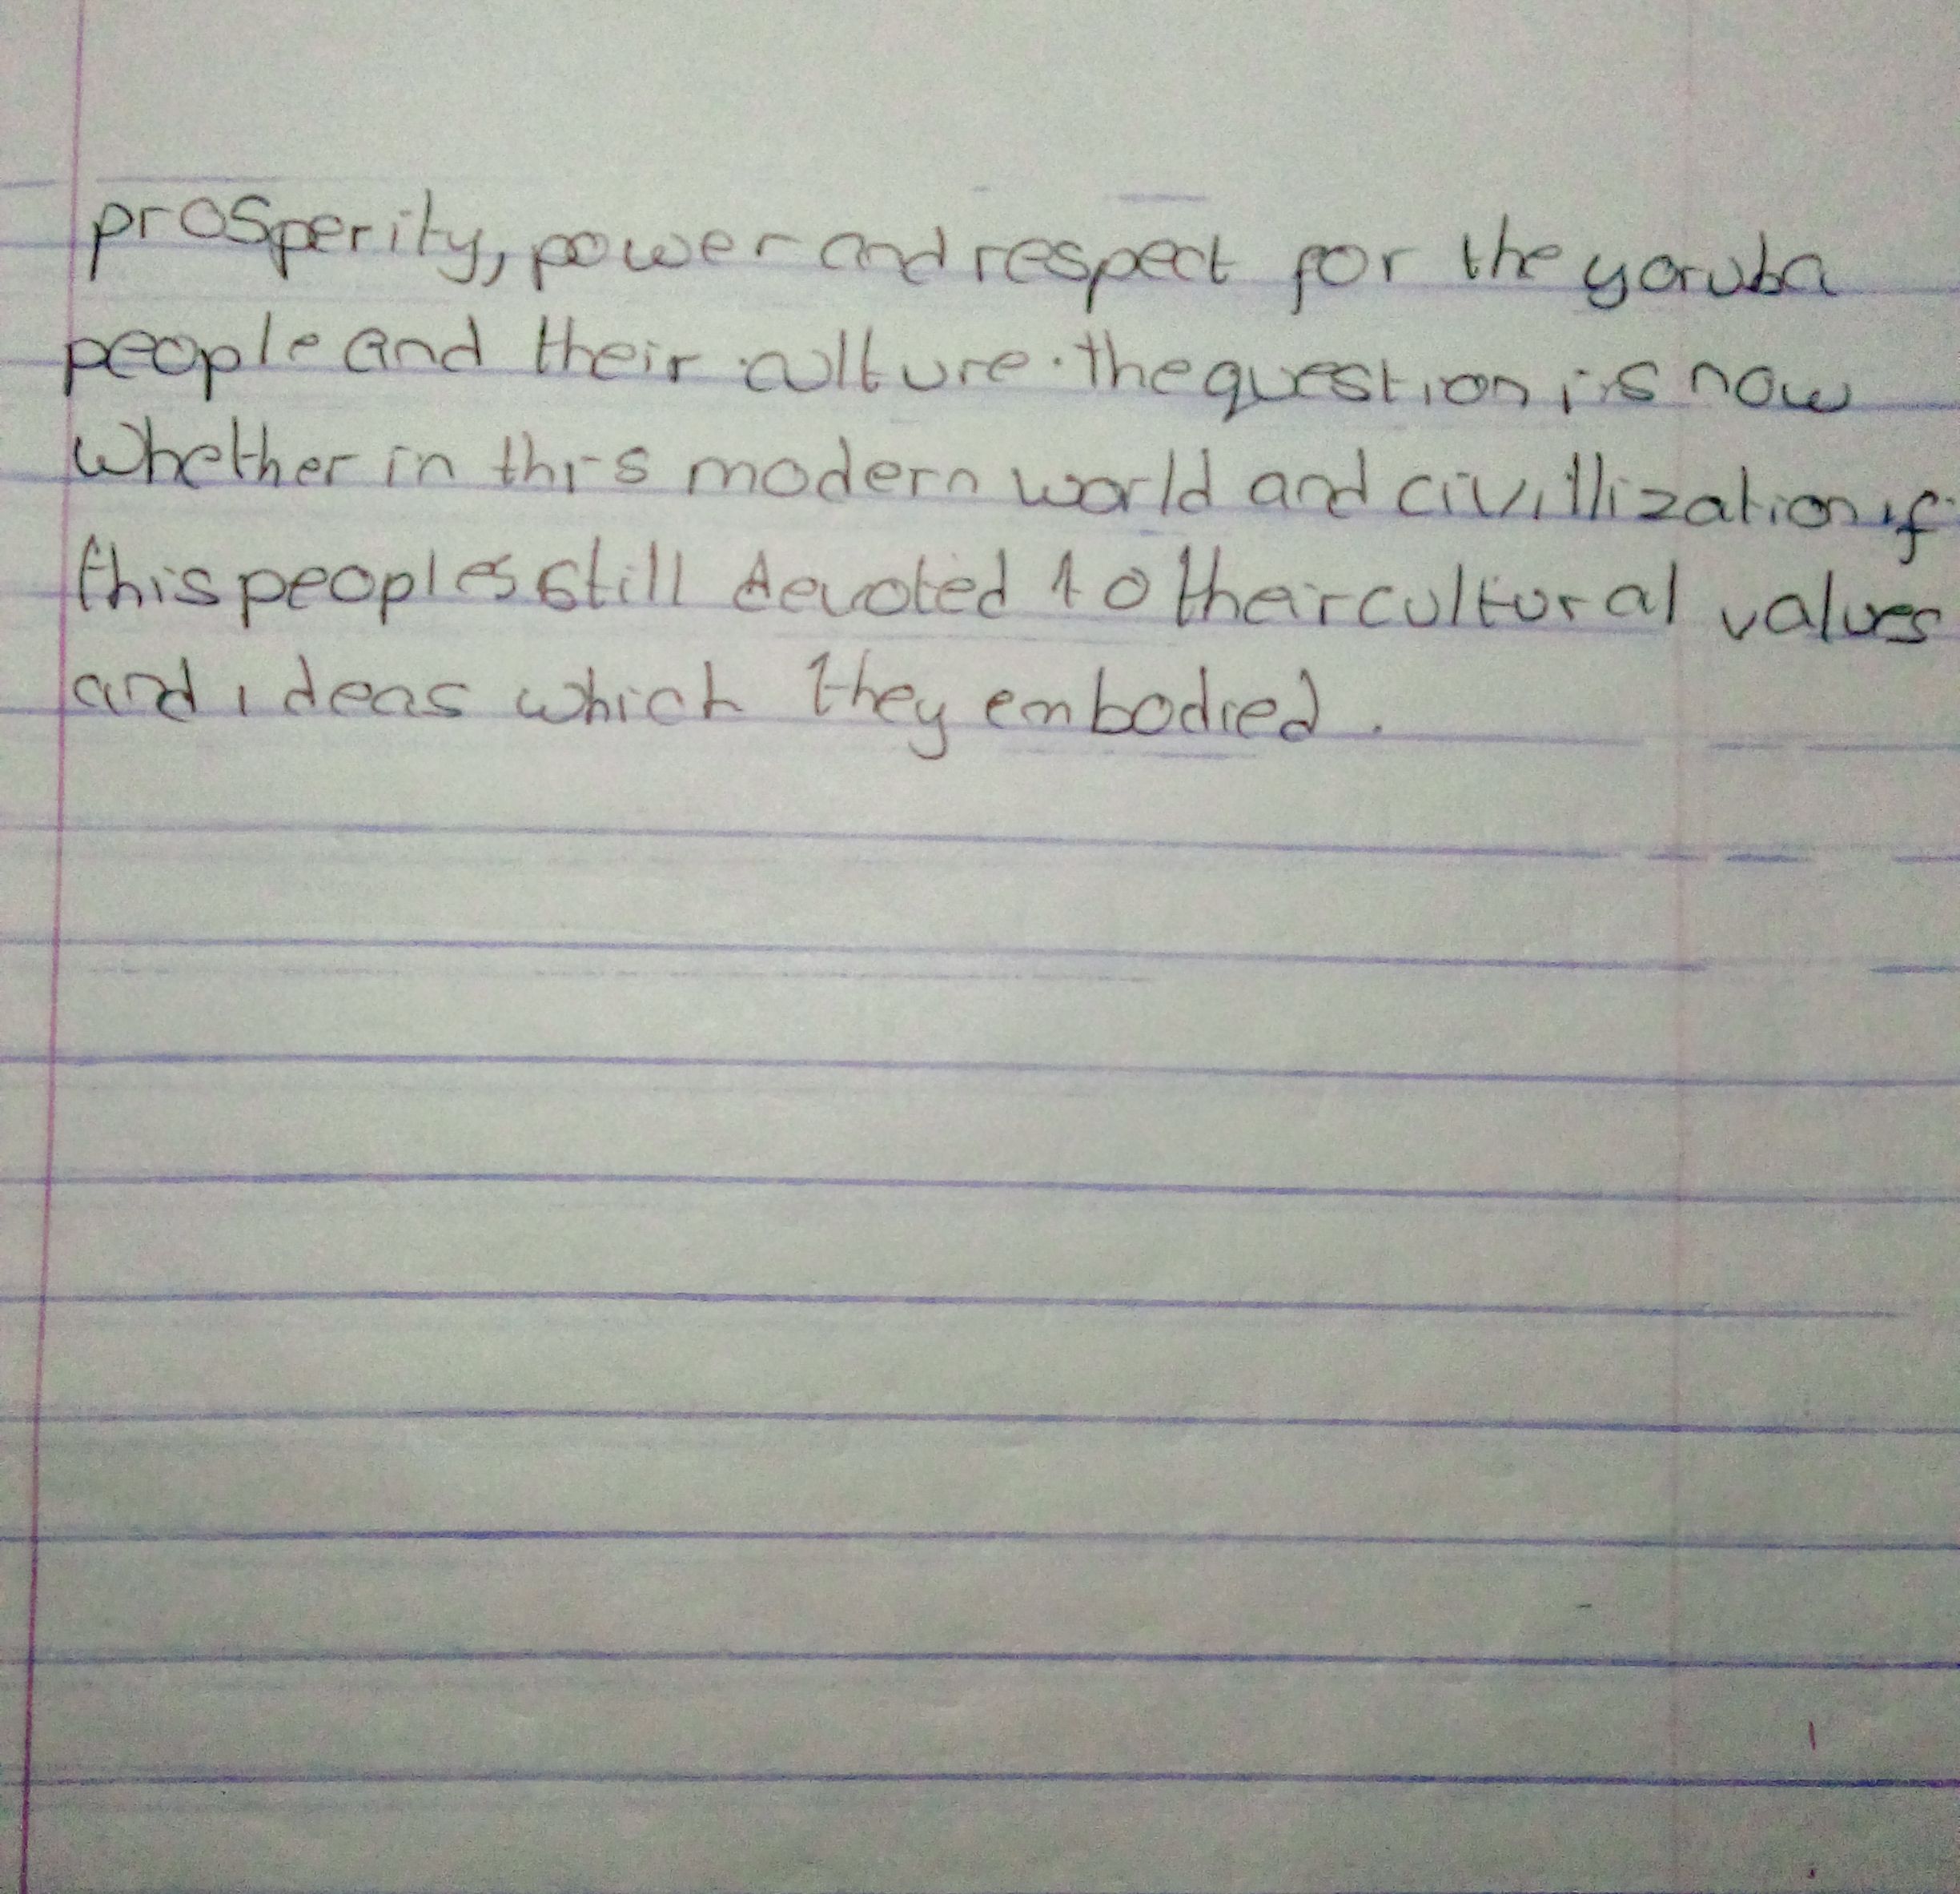 prosperity, power and respect for the yoruba
people and their culture. the question is now
whether in this modern world and civillization if
this peoples still devoted to their cultural values
and ideas which they embodied.